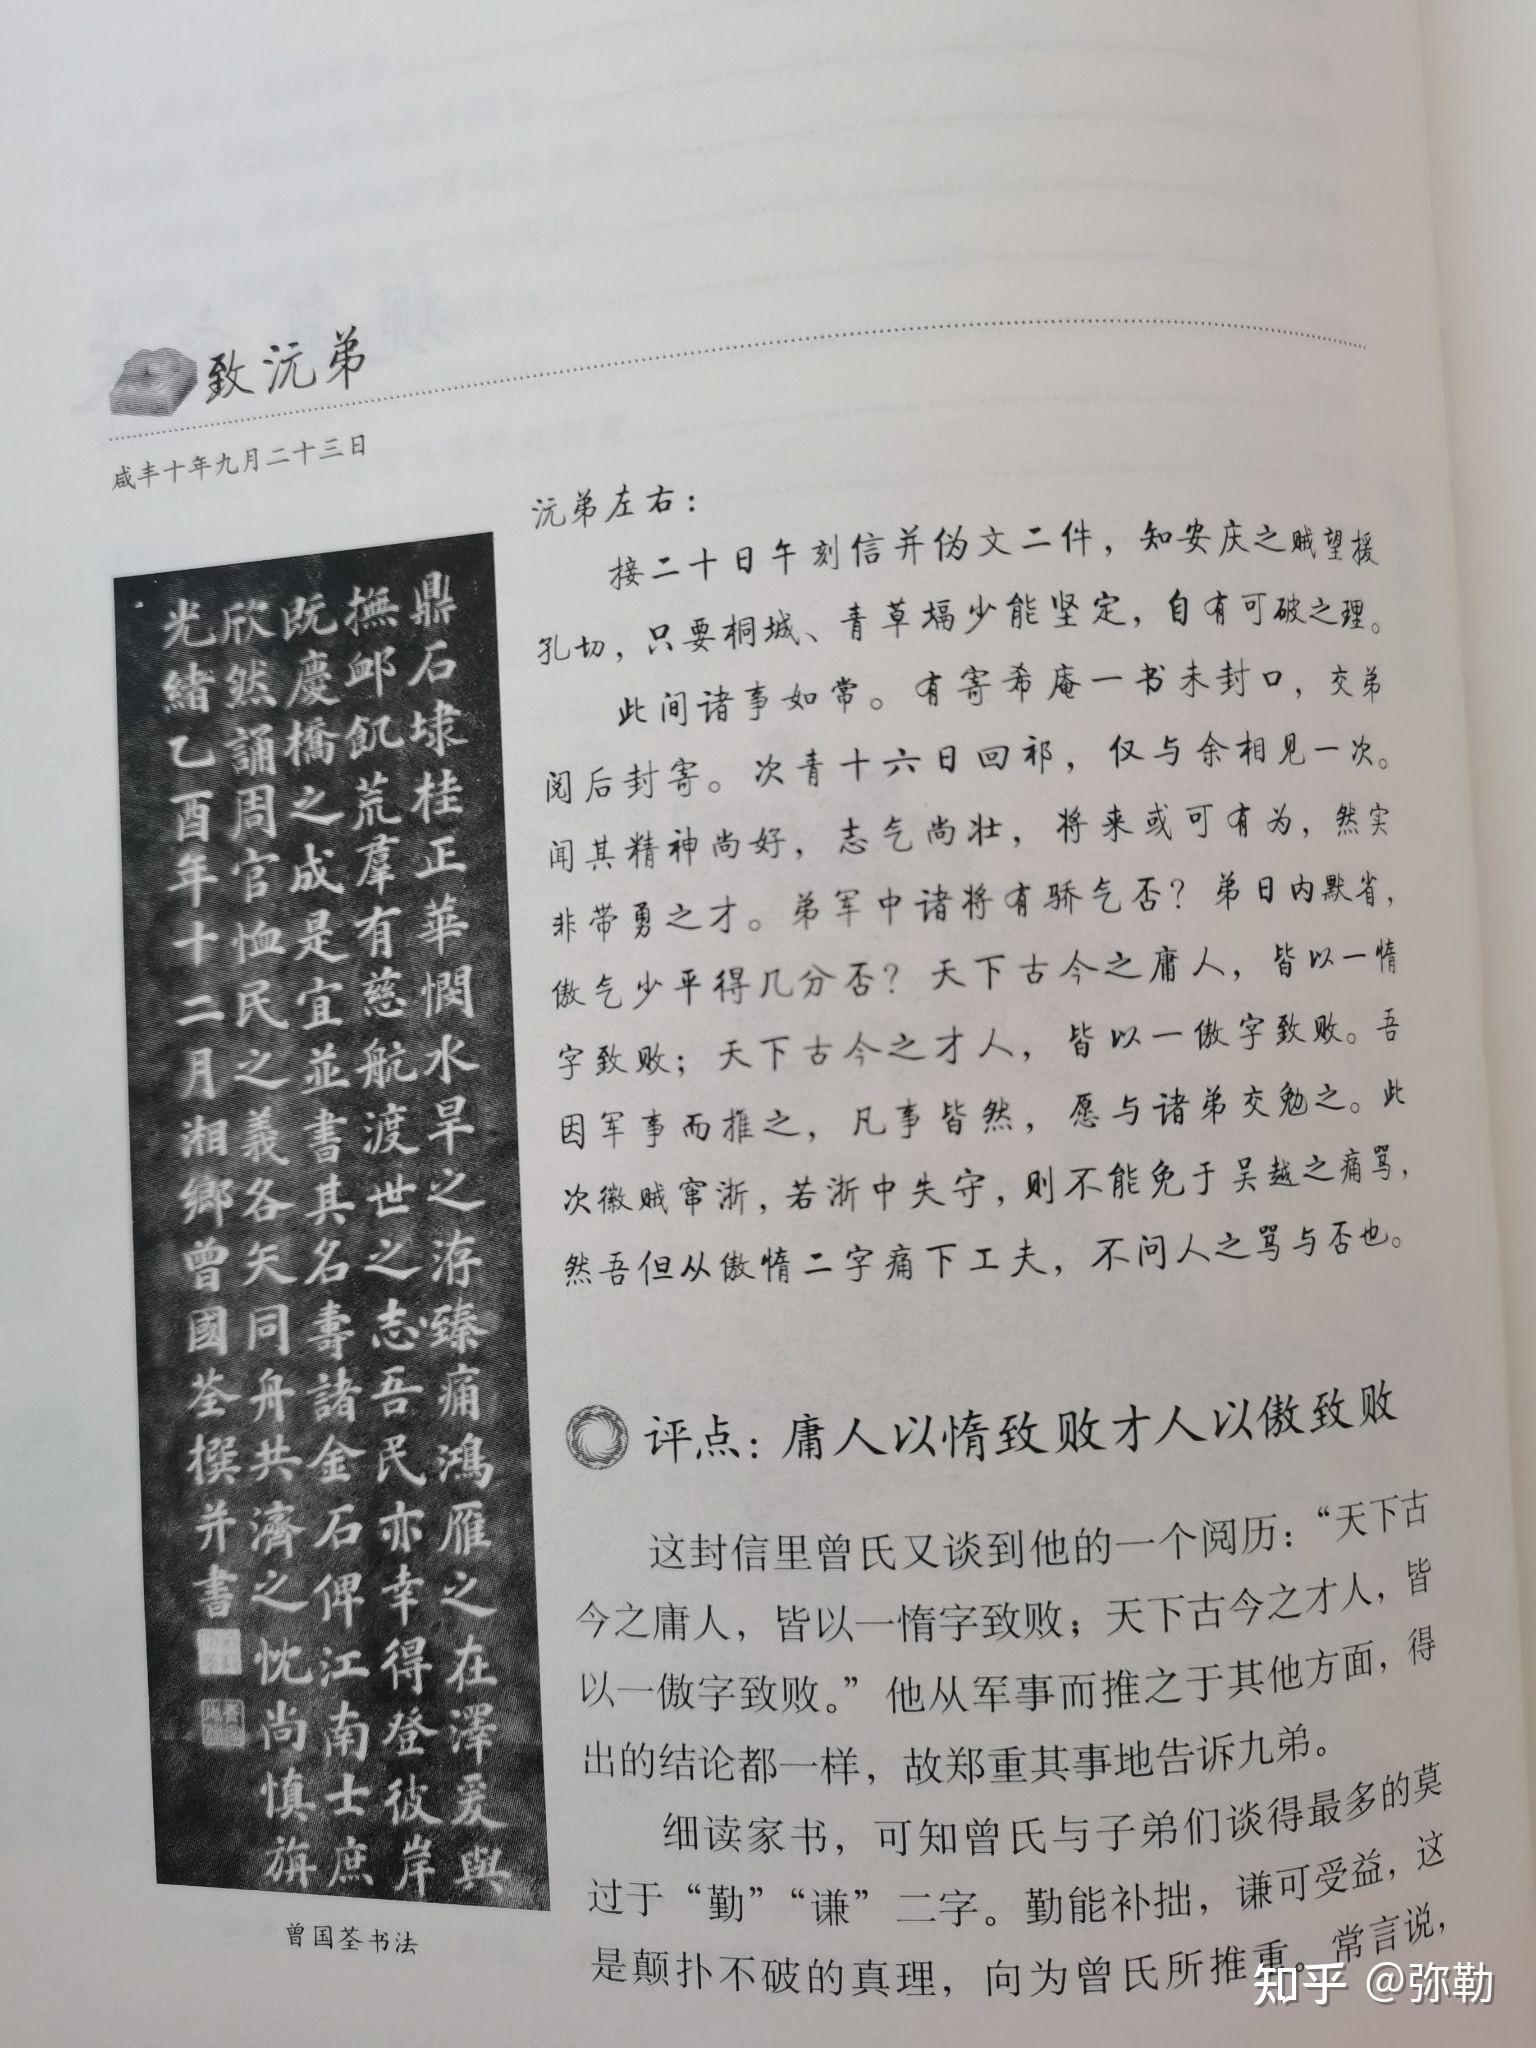 致沅弟
咸丰十年九月二十三日
沅弟左右：
接二十日午刻信并伪文二件，知安庆之贼望援
孔切，只要桐城、青草塥少能坚定，自有可破之理。
此间诸事如常。有寄希庵一书未封口，交弟
阅后封寄。次青十六日回祁，仅与余相见一次。
闻其精神尚好，志气尚壮，将来或可有为，然实
非带勇之才。弟军中诸将有骄气否？弟日内默省，
傲气少平得几分否？天下古今之庸人，皆以一惰
字致败；天下古今之才人，皆以一傲字致败。吾
因军事而推之，凡事皆然，愿与诸弟交勉之。此
次徽贼窜浙，若浙中失守，则不能免于吴越之痛骂，
然吾但从傲惰二字痛下工夫，不问人之骂与否也。
鼎石埭桂正華憫水旱之洊臻痛鴻雁之在澤爰與
撫䘏飢荒羣有慈航渡世之志吾民亦幸得登彼岸
既慶橋之成是宜並書其名壽諸金石俾江南士庶
欣然誦周官恤民之義各矢同舟共濟之忱尚慎旃
光緒乙酉年十二月湘鄉曾國荃撰并書
曾国荃书法
评点：庸人以惰致败才人以傲致败
这封信里曾氏又谈到他的一个阅历：“天下古
今之庸人，皆以一惰字致败；天下古今之才人，皆
以一傲字致败。”他从军事而推之于其他方面，得
出的结论都一样，故郑重其事地告诉九弟。
细读家书，可知曾氏与子弟们谈得最多的莫
过于“勤”“谦”二字。勤能补拙，谦可受益，这
是颠扑不破的真理，向为曾氏所推重。常言说，
知乎 @弥勒